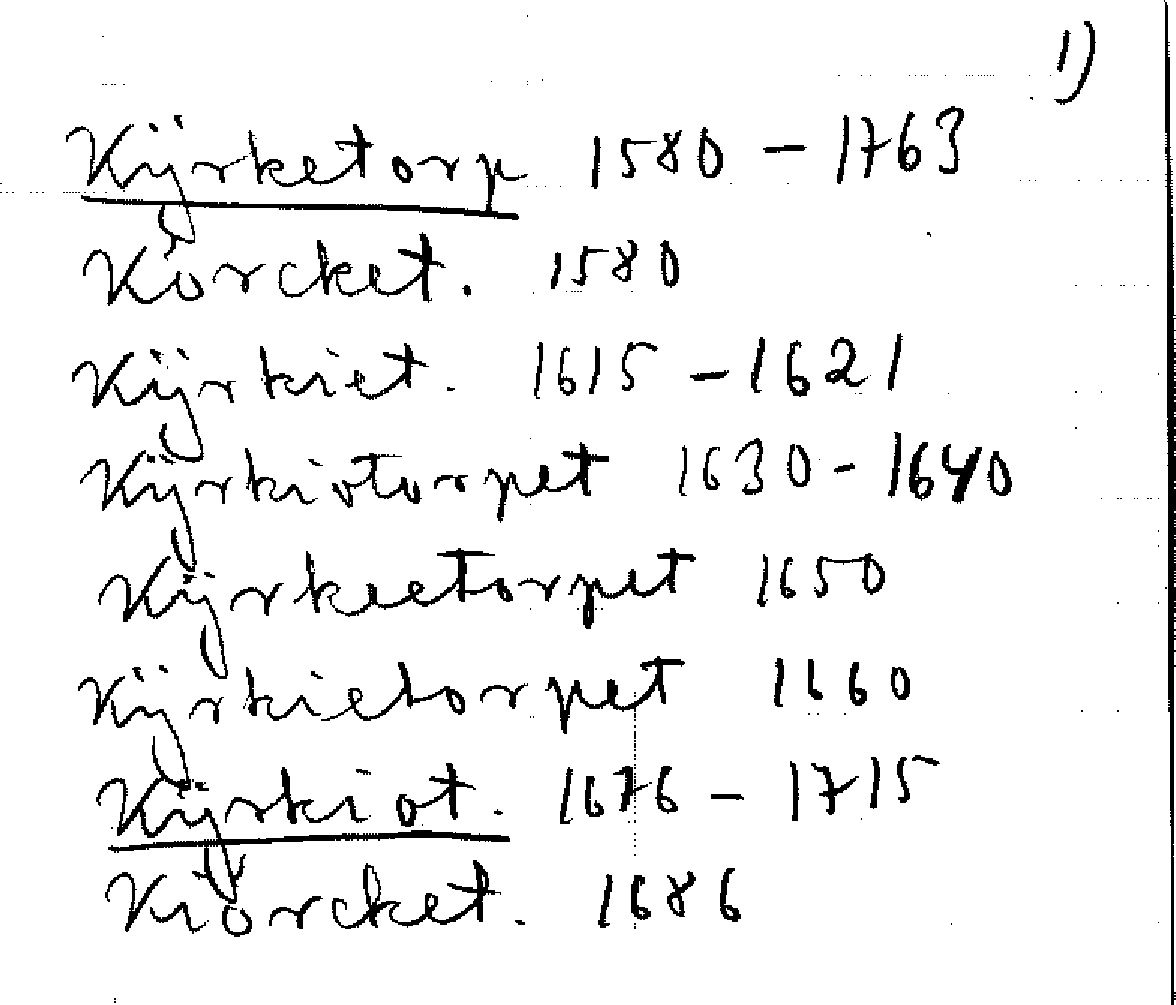 1)
Kÿrketorp 1580 – 1763
Körcket. 1580
Kÿrkiet. 1615 – 1621
Kÿrkiotorpet 1630 - 1640
Kÿrkeetorpet 1650
Kÿrkietorpet 1660
Kÿrkiot. 1676 – 1715
Kiörcket. 1686